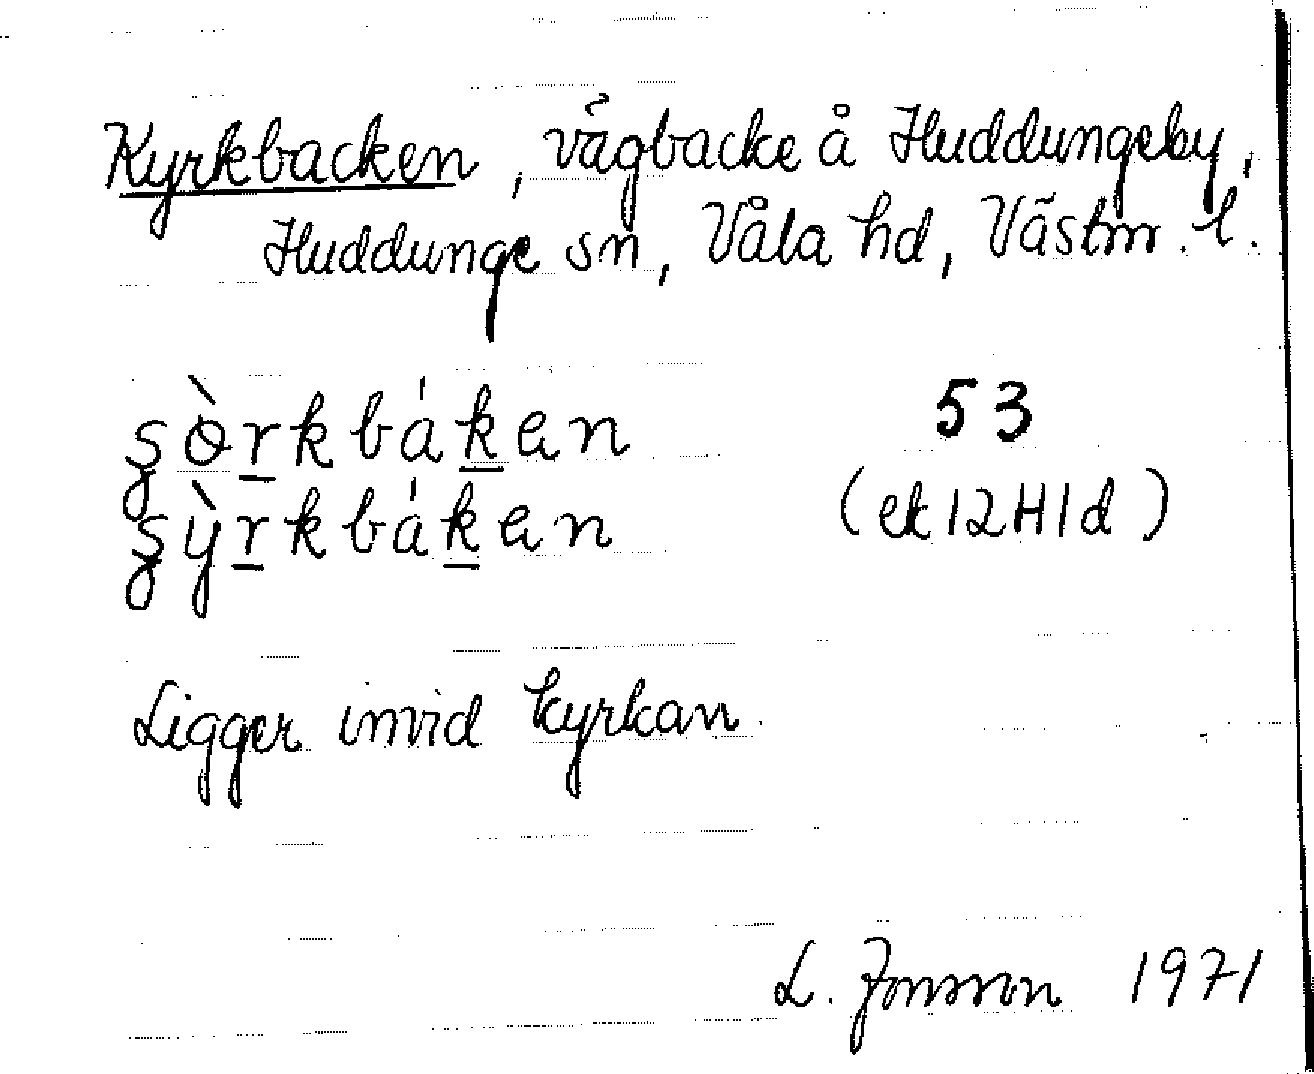 Kyrkbacken, vägbacke å Huddungeby,
Huddunge sn, Våla hd, Västm. l.
ʂɵ̀r̲kbák̲en 53
ʂỳr̲kbák̲en (ek 12H1d)
Ligger invid kyrkan.
L. Jonsson 1971